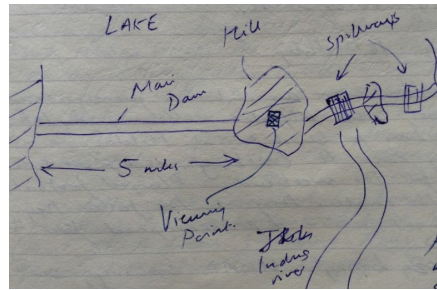 LAKE
Hill
spillways
Main
Dam
5 miles
Viewing
Point.
Indus
river